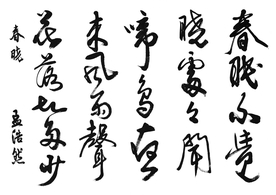 春眠不覺
曉處々聞
啼鳥夜
來風雨聲
花落知多少
春曉
孟浩然